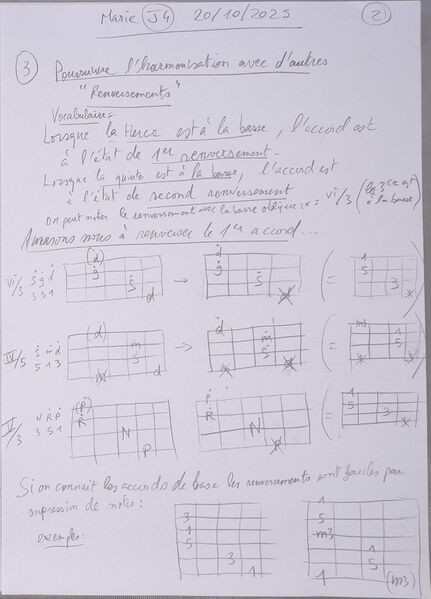 Marie J4 20/10/2025 2
3 Poursuivre l'harmonisation avec d'autres
"Renversements"
Vocabulaire =
Lorsque la tierce est à la basse, l'accord est
à l'état de 1er renversement.
Lorsque la quinte est à la basse, l'accord est
à l'état de second renversement
On peut noter le renversement avec la basse oblique ex = vi/3 (la 3ce est à la basse)
Amusons nous à renverser le 1er accord...
vi/3 s g d
3 5 1
(d) g s d → d g s (= 1 5 3 x )
IV/5 s m d
5 1 3
(d) m s d → d m s (= m3 1 5 3 )
V/3 N R P
3 5 1
(P) R N P P R N (= 1 5 3 x
Si on connait les accords de base les renversements sont faciles par
supression de notes :
exemples :
3 1
1 5
5 m3
3 1
5
1 1 (m3)